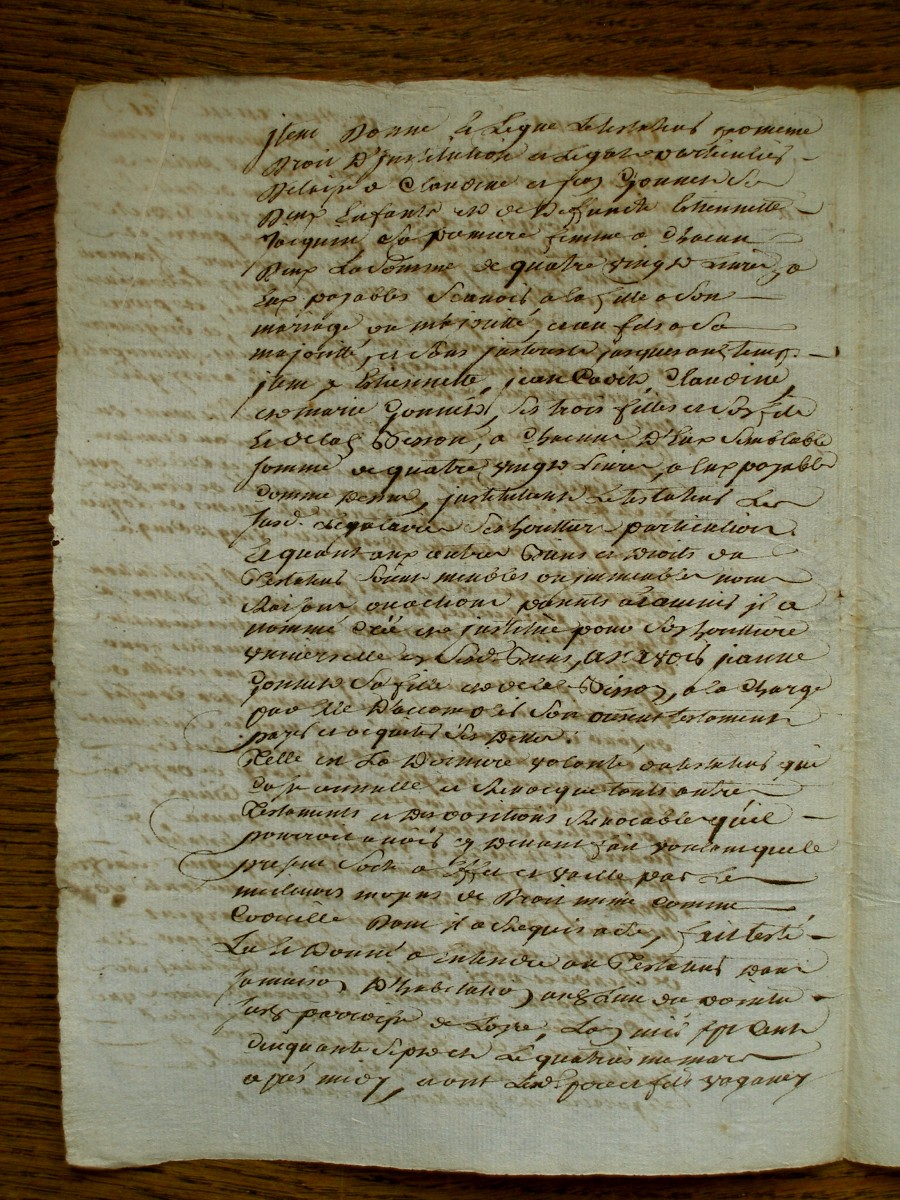 item donne et legue le testateur par meme
droit d'institution et legat particulier
delaisse a Claudine et Jean Gonnet ses
deux enfants et de deffuncte Etiennette
Jacquin sa premiere femme a chacun
deux la somme de quatre vingt livres, a
eux payables scavoir a la fille a son
mariage ou majorité, et au fils a sa
majorité, et sans interest jusques au temps
item a Etiennette, jean Claude, Claudine,
et marie Gonnet, ses trois filles et son fils
et de lad. Besson, a chacune d'eux semblable
somme de quatre vingt livres, a eux payable
comme dessus, instituant le testateur les
susd. legataires ses heritiers particuliers
Et quant aux autres biens et droits du
Testateur soient meubles ou immeubles noms
raisons ou actions presents et advenir il a
nommé créé et institué pour son heritiere
universelle en sesd. biens, jeanne
Gonnet sa fille et de lad. Besson, a la charge
par elle d'accomplir son present testament
payer et acquitter ses dettes.
Telle est la derniere volonté du testateur qui
casse annulle et revocque touts autres
Testaments et dispositions revocables qu'il
pourroit avoir cy devant fait voulant que le
present sorte a effet et vaille par les
meilleurs moyens de droit meme comme
Codicille dont il a requis acte, fait testé
Lu et donné a entendre au Testateur dans
sa maison d'habitation au lieu du
susd. parroisse de Loyre, L'an mil sept cent
cinquante sept et le quatrieme mars
apres midy, avont